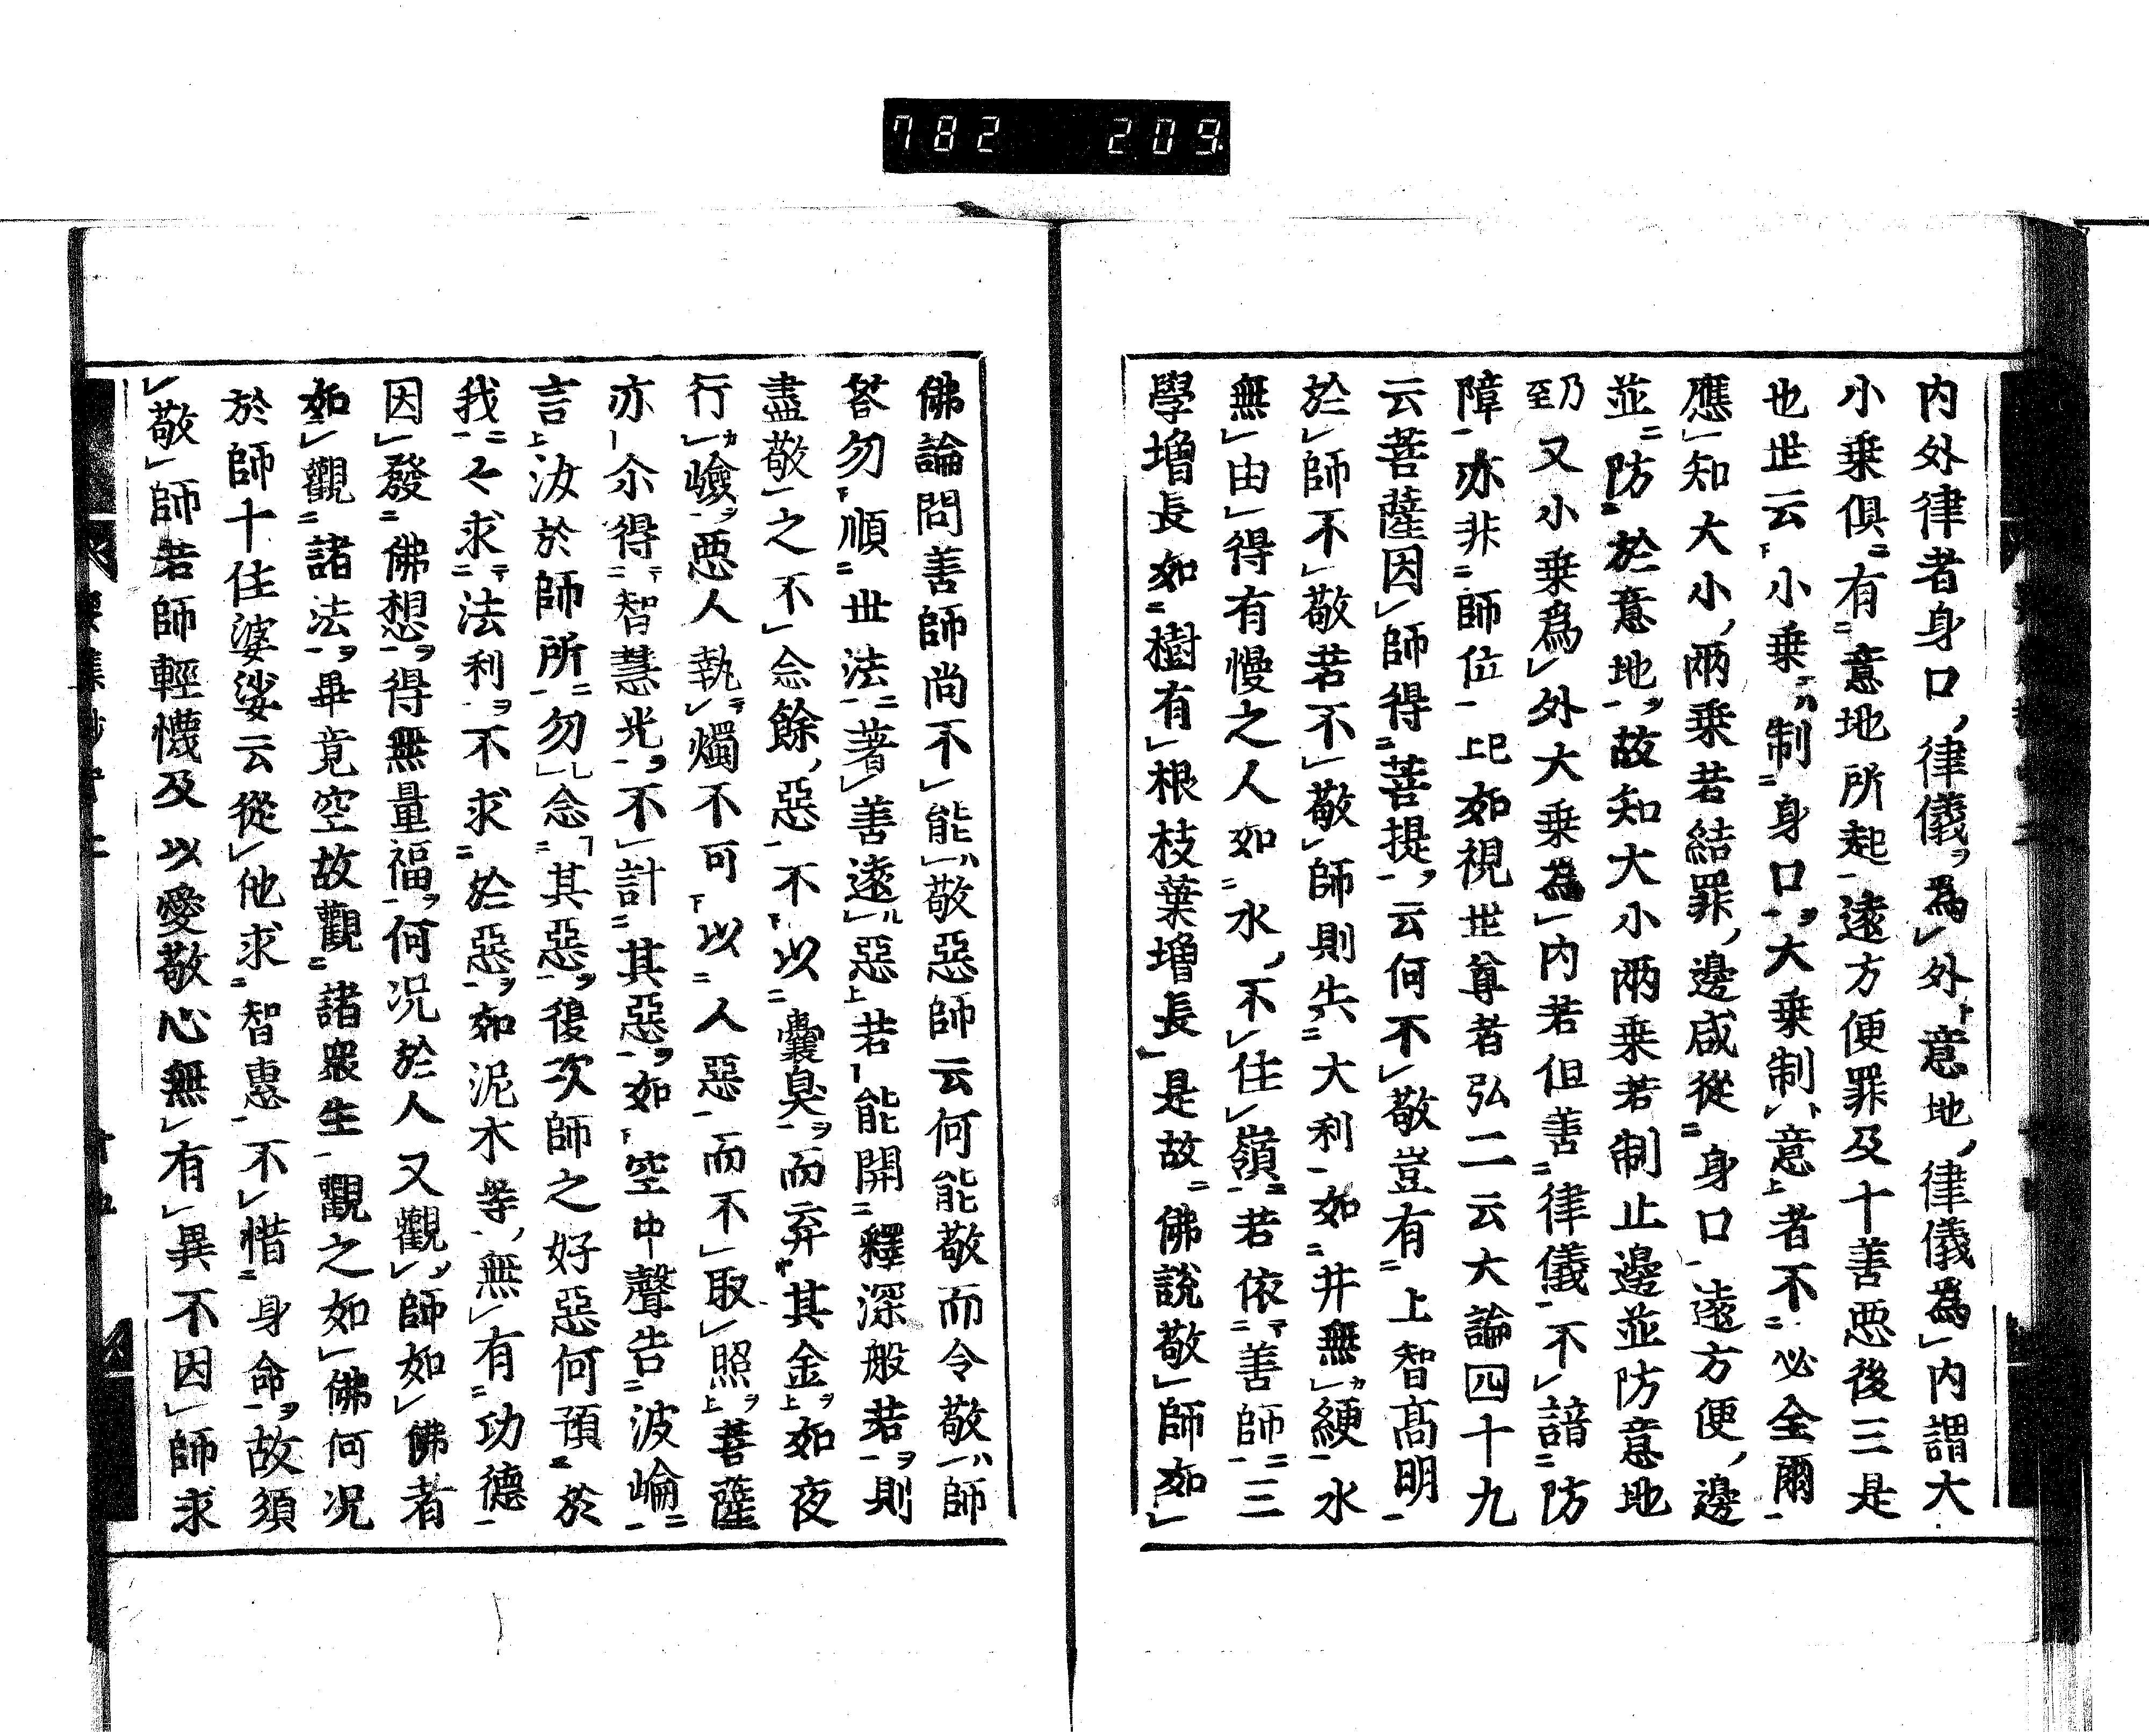 782 209
内外律者身口律儀為外意地律儀為内謂大
小乗俱有意地所起遠方便罪及十善悪後三是
也世云小乗制身口大乗制意者不必全爾
應知大小兩乗若結罪邊咸從身口遠方便邊
並防於意地故知大小兩乗若制止邊並防意地
乃至又小乗爲外大乗為内若但善律儀不諳防
障亦非師位比如視世尊者弘二云大論四十九
云菩薩因師得菩提云何不敬豈有上智髙明
於師不敬若不敬師則失大利如井無綆水
無由得有慢之人如水不住嶺若依善師三
學增長如樹有根枝葉增長是故佛說敬師如
佛論問善師尚不能敬惡師云何能敬而令敬師
答勿順世法著善遠惡若能開釋深般若則
盡敬之不念餘惡不以囊臭而弃其金如夜
行嶮惡人執燭不可以人惡而不取照菩薩
亦尒得智慧光不計其惡如空中聲告波崘
言汝於師所勿念其惡復次師之好惡何預於
我々求法利不求於惡如泥木等無有功德
因發佛想得無量福何况於人又觀師如佛者
如觀諸法畢竟空故觀諸衆生觀之如佛何况
於師十住婆娑云從他求智惠不惜身命故須
敬師若師輕懱及以愛敬心無有異不因師求